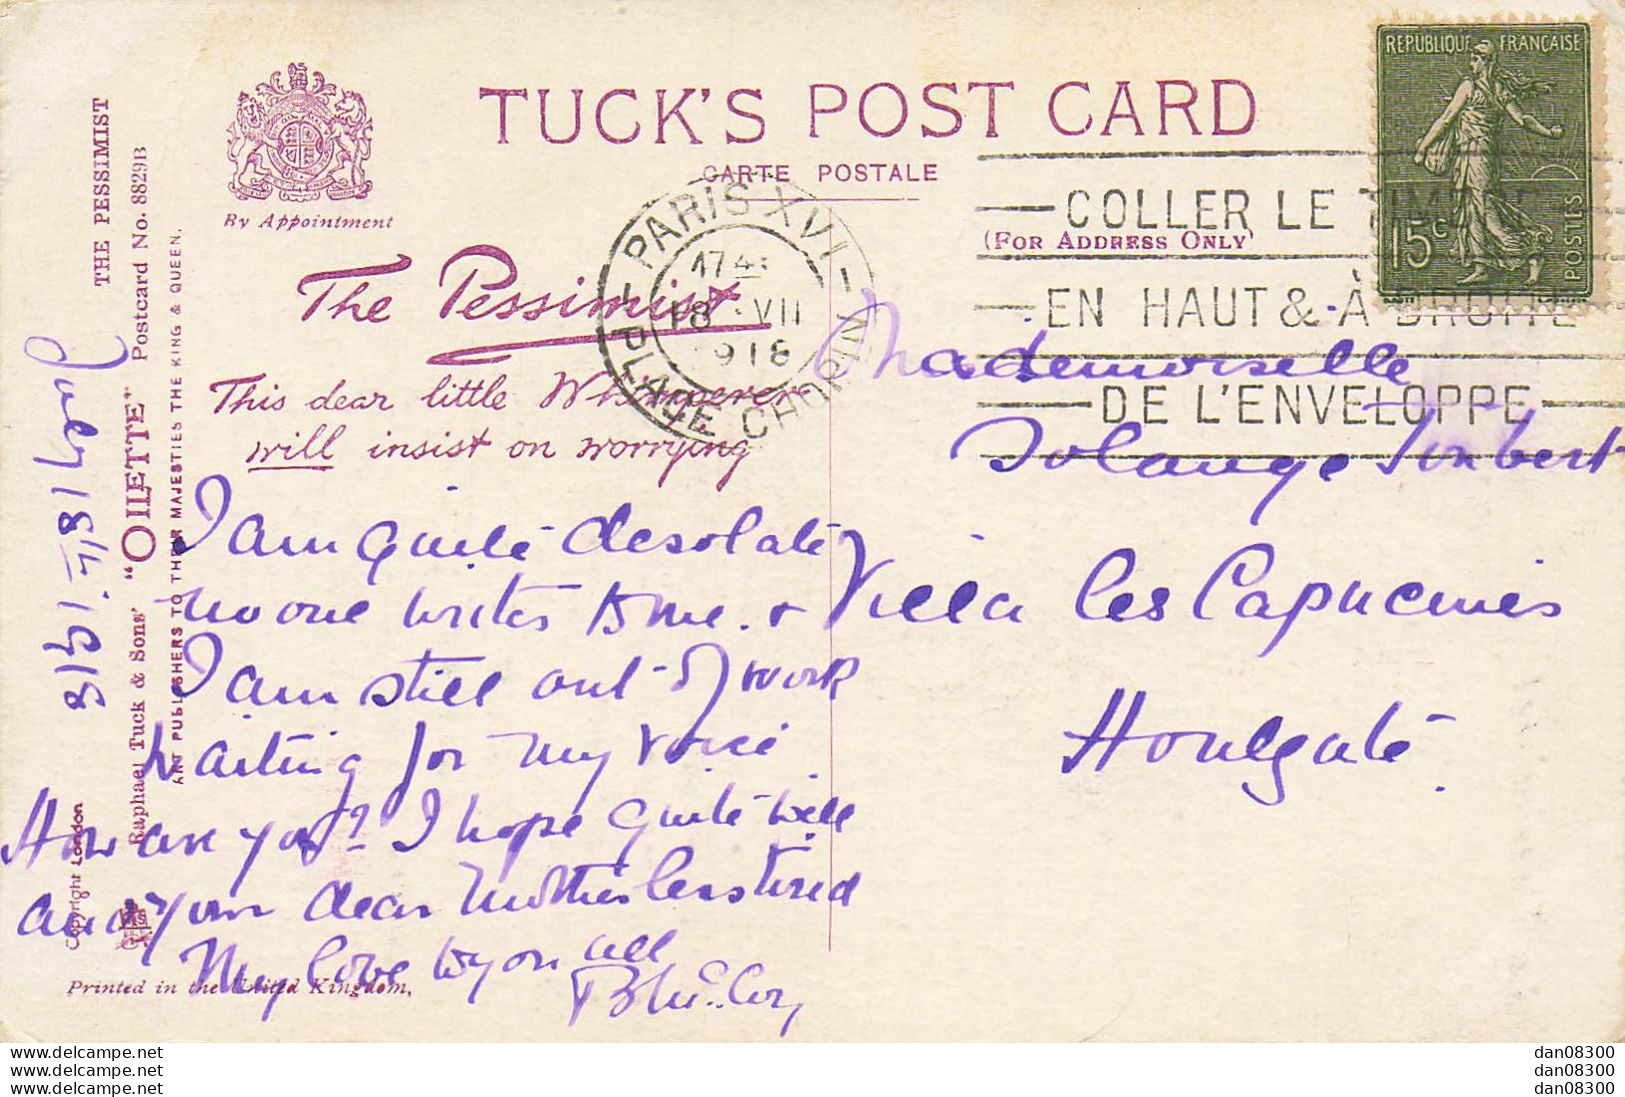 TUCK'S POST CARD
CARTE POSTALE
(FOR ADDRESS ONLY)
By Appointment
THE PESSIMIST
Raphael Tuck & Sons' "OILETTE" Postcard No. 8829B
ART PUBLISHERS TO THEIR MAJESTIES THE KING & QUEEN.
Copyright London
Printed in the United Kingdom.
REPUBLIQUE FRANÇAISE
15c
POSTES
PARIS XVI
PLACE CHOPIN
1745
18 VII
1918
COLLER LE TIM
EN HAUT & À DROITE
DE L'ENVELOPPE
The Pessimist
This dear little Whimperer
will insist on worrying
I am quite desolate
no one writes to me. &
I am still out of work
waiting for my voice
How are you? I hope quite well
and your dear Mother less tired
My love to you all
Mademoiselle
Solange Imbert
Villa les Capucines
Houlgate.
www.delcampe.net
www.delcampe.net
www.delcampe.net
dan08300
dan08300
dan08300